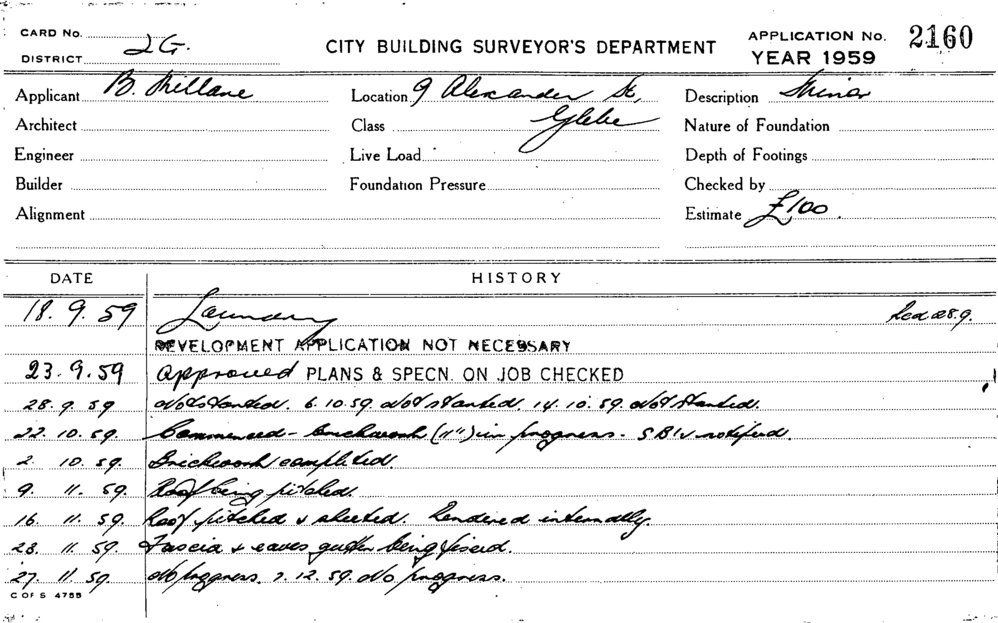 CARD No. 2G. CITY BUILDING SURVEYOR'S DEPARTMENT APPLICATION No. 2160
DISTRICT YEAR 1959
Applicant B. Millane Location 9 Alexander St, Description Minor
Architect Class Glebe Nature of Foundation
Engineer Live Load Depth of Footings
Builder Foundation Pressure Checked by
Alignment Estimate £100.
DATE HISTORY
18.9.59 Laundry Recd 28.9.
DEVELOPMENT APPLICATION NOT NECESSARY
23.9.59 approved PLANS & SPECN. ON JOB CHECKED
28.9.59 Not started. 6.10.59. Not started. 14.10.59. Not started.
22.10.59. Commenced - brickwork (11") in progress. notified.
2. 10.59. Brickwork completed.
9. 11.59. Roof being pitched.
16. 11.59. Roof pitched & sheeted. Rendered internally.
23. 11.59. Fascia & eaves gutter being fixed.
27. 11.59. No progress. 7.12.59. No progress.
C OF S 4755